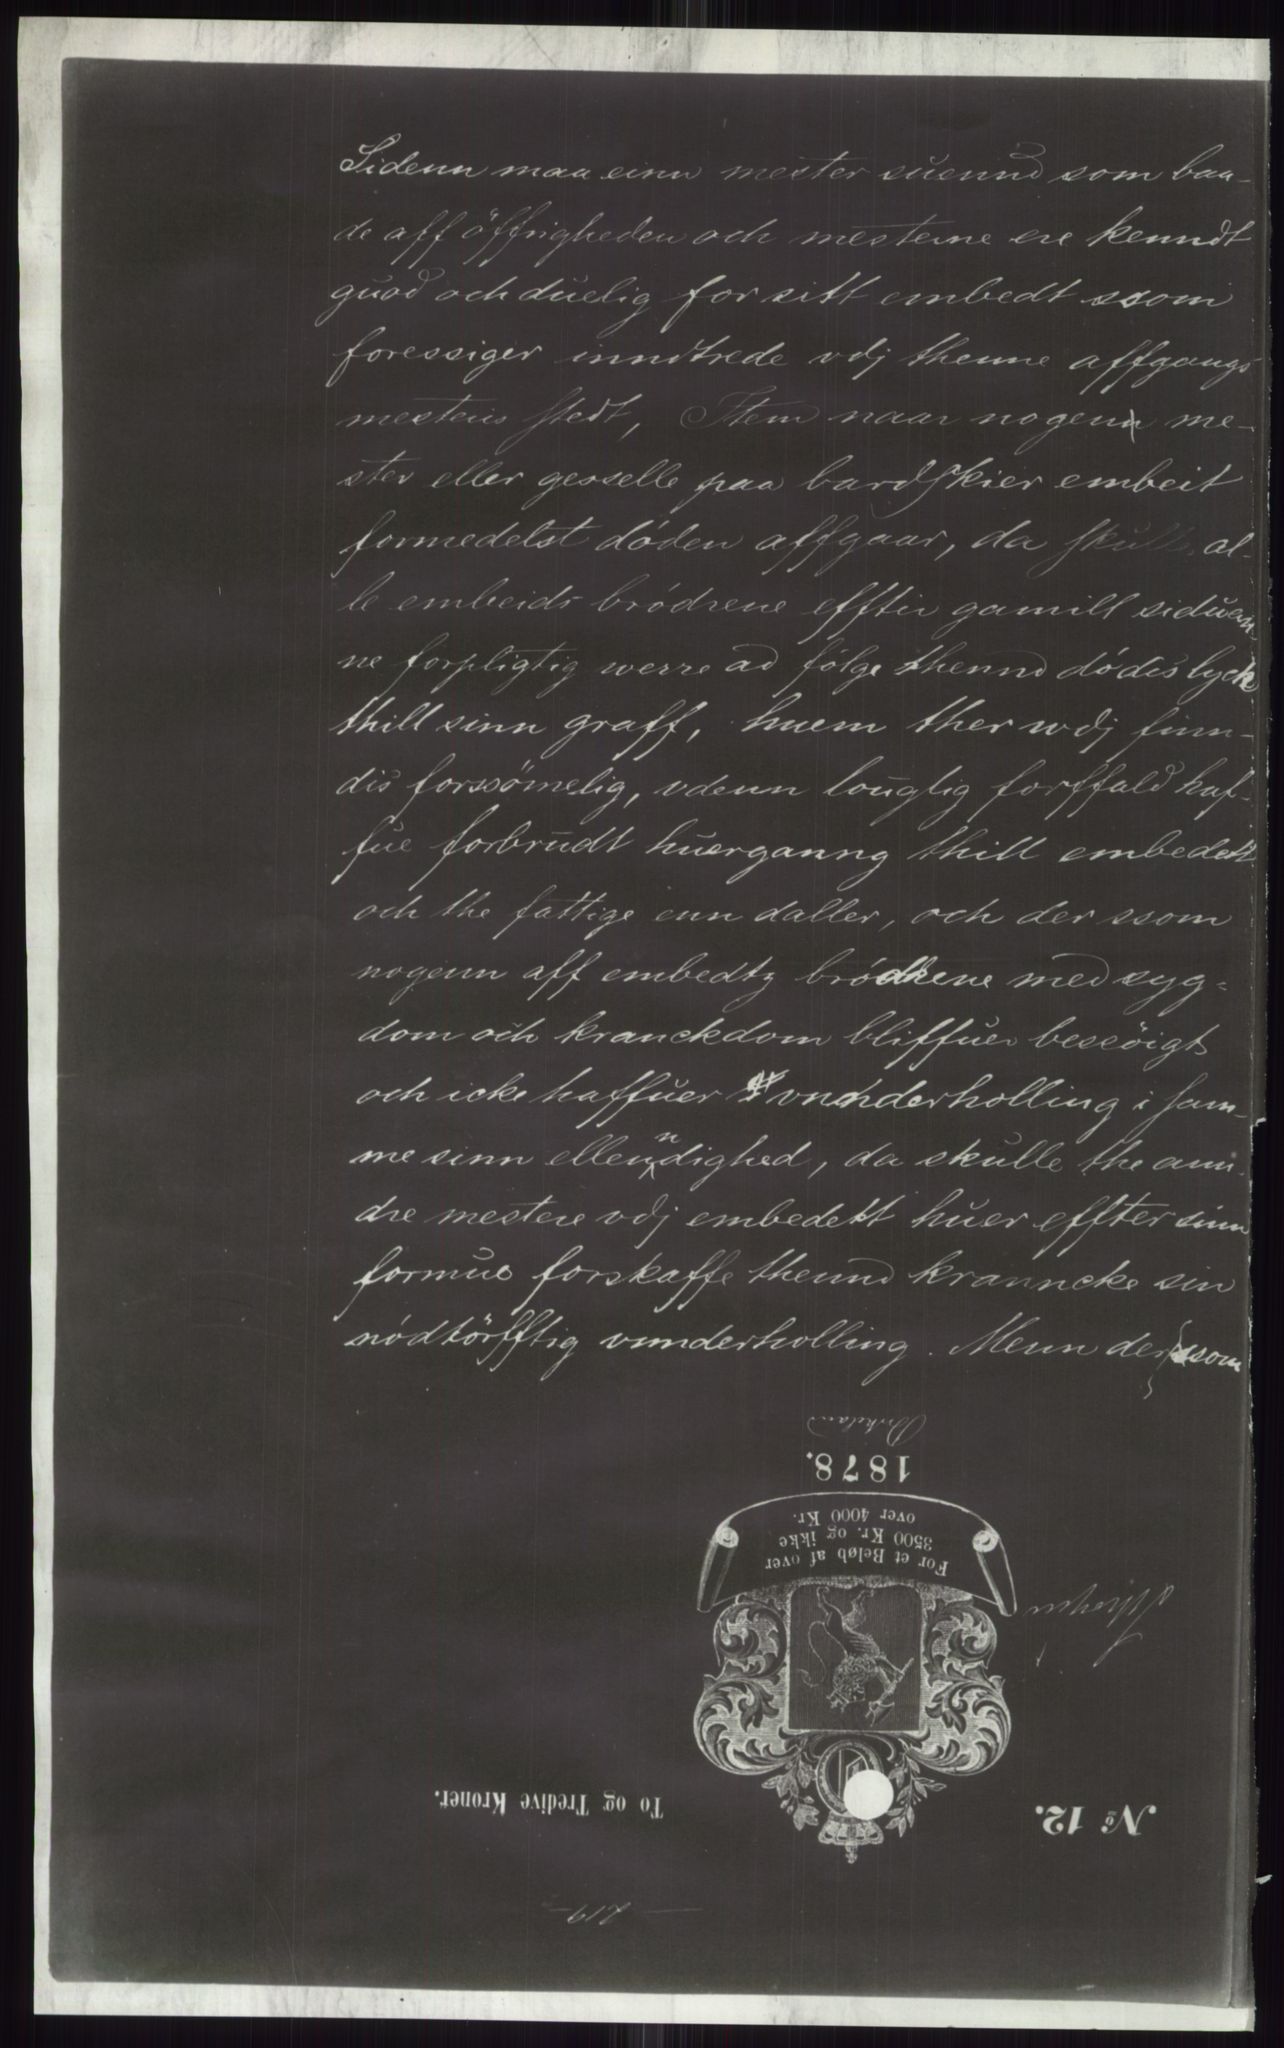 Sidenn maa einn mester suennd som baa-
de aff öffrigheden och mesterne ere kenndt
guod och duelig for sitt embedt ssom
foressiger inndtrede vdj thenne affgangs
mesteris stedt, Item naar nogenn me-
ster eller gesselle paa bardskier embeit
formedelst döden affgaar, da skulle al-
le embeids brödrene effter gamill siduan-
ne forpligtig werre ad følge thennd dødis lyck
thill sinn graff, huem ther wdj finn-
dis forssömelig, vdenn louglig forffald haf-
fue forbrudt huerganng thill embedett
och the fattige enn daller, och der ssom
nogenn aff embedtz brödrene med syg-
dom och kranckdom bliffuer bessöigt
och icke haffuer vnnderholling i sam-
me sinn ellenndighed, da skulle the ann-
dre mestere vdj embedett huer effter sinn
formue forskaffe thennd kranncke sin
nödtörfftig vnnderholling. Menn der ssom
1878.
For et Beløb af over
3500 Kr. og ikke
over 4000 Kr.
To og Tredive Kroner.
№ 12.